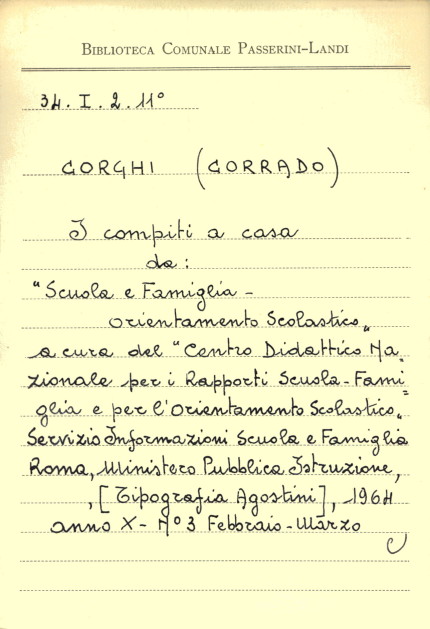 BIBLIOTECA COMUNALE PASSERINI-LANDI
34. I. 2. 11°
CORGHI (CORRADO)
I compiti a casa
da:
"Scuola e Famiglia -
Orientamento Scolastico"
a cura del "Centro Didattico Na=
zionale per i Rapporti Scuola-Fami=
glia e per l'Orientamento Scolastico"
Servizio Informazioni Scuola e Famiglia
Roma, Ministero Pubblica Istruzione,
, [Tipografia Agostini], 1964
anno X - N° 3 Febbraio - Marzo